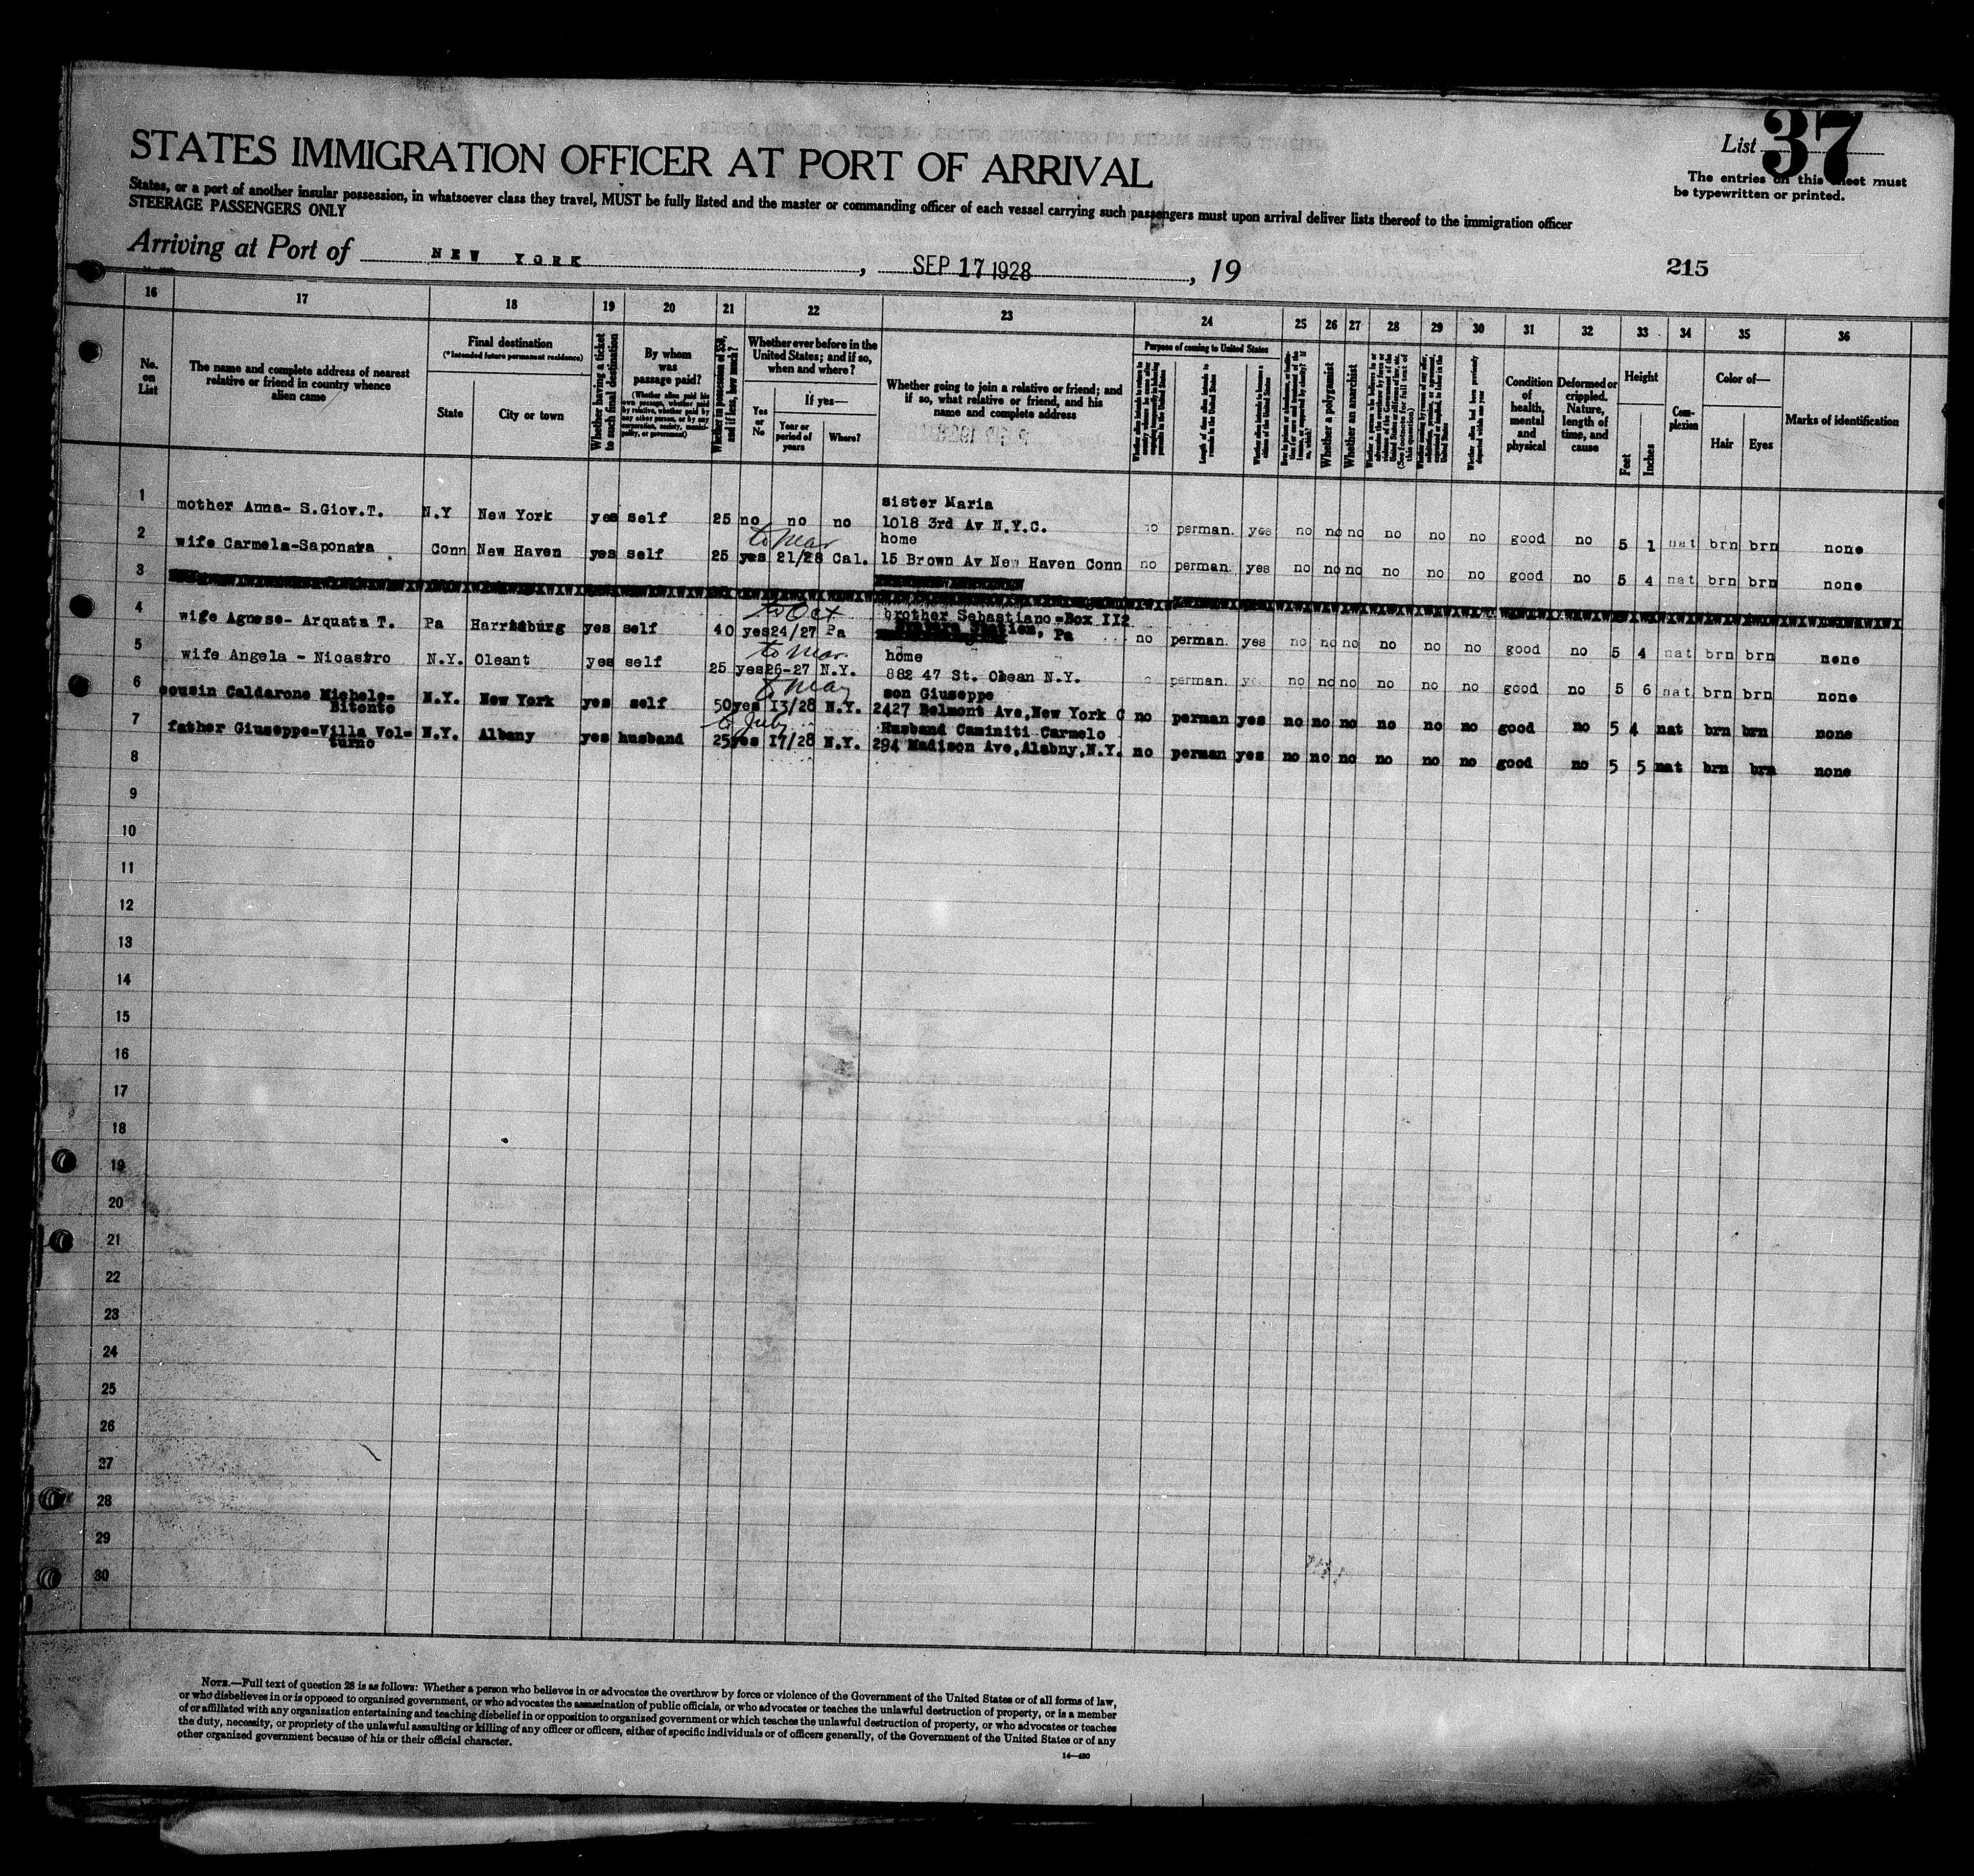 List 37
The entries on this sheet must
be typewritten or printed.
STATES IMMIGRATION OFFICER AT PORT OF ARRIVAL
States, or a port of another insular possession, in whatsoever class they travel, MUST be fully listed and the master or commanding officer of each vessel carrying such passengers must upon arrival deliver lists thereof to the immigration officer
STEERAGE PASSENGERS ONLY
Arriving at Port of NEW YORK, SEP 17 1928, 19
215
16 17 18 19 20 21 22 23 24 25 26 27 28 29 30 31 32 33 34 35 36
No. on List
The name and complete address of nearest relative or friend in country whence alien came
Final destination
(*Intended future permanent residence)
State
City or town
Whether having a ticket to such final destination
By whom was passage paid?
(Whether alien paid his own passage, whether paid by relative, whether paid by any other person, or by any corporation, society, municipality, or government)
Whether in possession of $50, and if less, how much?
Whether ever before in the United States; and if so, when and where?
Yes or No
If yes—
Year or period of years
Where?
Whether going to join a relative or friend; and if so, what relative or friend, and his name and complete address
Purpose of coming to United States
Length of time alien intends to remain in the United States
Whether alien intends to become a citizen of the United States
Whether a polygamist
Whether an anarchist
Whether alien had been previously deported within one year
Condition of health, mental and physical
Deformed or crippled. Nature, length of time, and cause
Height
Feet
Inches
Complexion
Color of—
Hair
Eyes
Marks of identification
1 mother Anna- S.Giov.T. N.Y New York yes self 25 no no no sister Maria
1018 3rd Av N.Y.C. no perman. yes no no no no no no good no 5 1 nat brn brn none
2 wife Carmela-Saponara Conn New Haven yes self 25 yes 21/28 Cal. home
15 Brown Av New Haven Conn no perman. yes no no no no no no good no 5 4 nat brn brn none
3
to Oct
4 wife Agnese- Arquata T. Pa Harrisburg yes self 40 yes 24/27 Pa brother Sebastiano-Box 112
Pa no perman. yes no no no no no no good no 5 4 nat brn brn none
5 wife Angela - Nicastro N.Y. Oleant yes self 25 yes 26-27 N.Y. home
882 47 St. Olean N.Y. perman. yes no no no no no no good no 5 6 nat brn brn none
to May
6 cousin Calderone Michele-
Bitonto N.Y. New York yes self 50 yes 13/28 N.Y. son Giuseppe
2427 Belmont Ave,New York C no perman yes no no no no no no good no 5 4 nat brn brn none
to July
7 father Giuseppe-Villa Vol-
turno N.Y. Albany yes husband 25 yes 17/28 N.Y. Husband Caminiti Carmelo
294 Madison Ave,Alabny,N.Y. no perman yes no no no no no no good no 5 5 nat brn brn none
8
9
10
11
12
13
14
15
16
17
18
19
20
21
22
23
24
25
26
27
28
29
30
NOTE.—Full text of question 28 is as follows: Whether a person who believes in or advocates the overthrow by force or violence of the Government of the United States or of all forms of law,
or who disbelieves in or is opposed to organized government, or who advocates the assassination of public officials, or who advocates or teaches the unlawful destruction of property, or is a member
of or affiliated with any organization entertaining and teaching disbelief in or opposition to organized government or which teaches the unlawful destruction of property, or who advocates or teaches
the duty, necessity, or propriety of the unlawful assaulting or killing of any officer or officers, either of specific individuals or of officers generally, of the Government of the United States or of any
other organized government because of his or their official character.
14—430